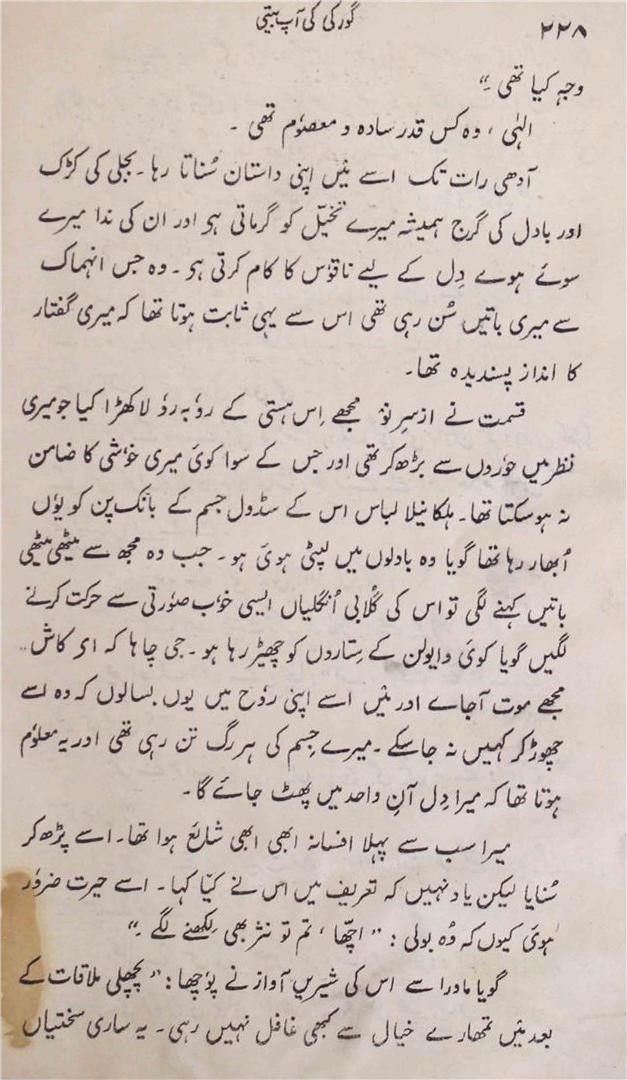 ۲۲۸
گورکی کی آپ بیتی
وجہ کیا تھی ؟“
الہٰی ، وہ کس قدر سادہ و معصوٗم تھی ۔
آدھی رات تک اسے مَیں اپنی داستان سُناتا رہا۔ بجلی کی کڑک
اور بادل کی گرج ہمیشہ میرے تخیّل کو گرماتی ہی اور ان کی ندا میرے
سوئے ہوے دِل کے لیے ناقوٗس کا کام کرتی ہی ۔ وہ جس انہماک
سے میری باتیں سُن رہی تھی اس سے یہی ثابت ہوتا تھا کہ میری گفتار
کا انداز پسندیدہ تھا۔
قسمت نے از سرِ نوَ مجھے اِس ہستی کے روٗ بہ روٗ لا کھڑا کیا جو میری
نظر میں حوٗروں سے بڑھ کر تھی اور جس کے سوا کوئی میری خوٗشی کا ضامن
نہ ہو سکتا تھا۔ ہلکا نیلا لباس اس کے سڈول جسم کے بانک پن کو یوٗں
اُبھار رہا تھا گویا وہ بادلوں میں لپٹی ہوئی ہو ۔ جب وہ مجھ سے میٹھی میٹھی
باتیں کہنے لگی تو اس کی گُلابی اُنگلیاں ایسی خوٗب صوٗرتی سے حرکت کرنے
لگیں گویا کوئی وایولن کے سِتاروں کو چھیڑ رہا ہو ۔ جی چاہا کہ ای کاش ..
مجھے موت آجاے اور مَیں اسے اپنی روٗح میں یوں بسالوں کہ وہ اسے
چھوڑ کر کہیں نہ جاسکے ۔ میرے جِسم کی ہر رگ تن رہی تھی اور یہ معلوٗم
ہوتا تھا کہ میرا دِل آنِ واحد میں پھٹ جاۓ گا ۔
میرا سب سے پہلا افسانہ ابھی ابھی شائع ہوا تھا۔ اسے پڑھ کر
سُنایا لیکن یاد نہیں کہ تعریف میں اس نے کیا کہا ۔ اسے حیرت ضروٗر
ہوئی کیوں کہ وُہ بولی : ” اچّھا ، تم تو نثر بھی لِکھنے لگے ۔“
گویا ماورا سے اس کی شیریں آواز نے پوٗچھا : ” پچھلی ملاقات کے
بعد مَیں تمھارے خیال سے کبھی غافل نہیں رہی ۔ یہ ساری سختیاں